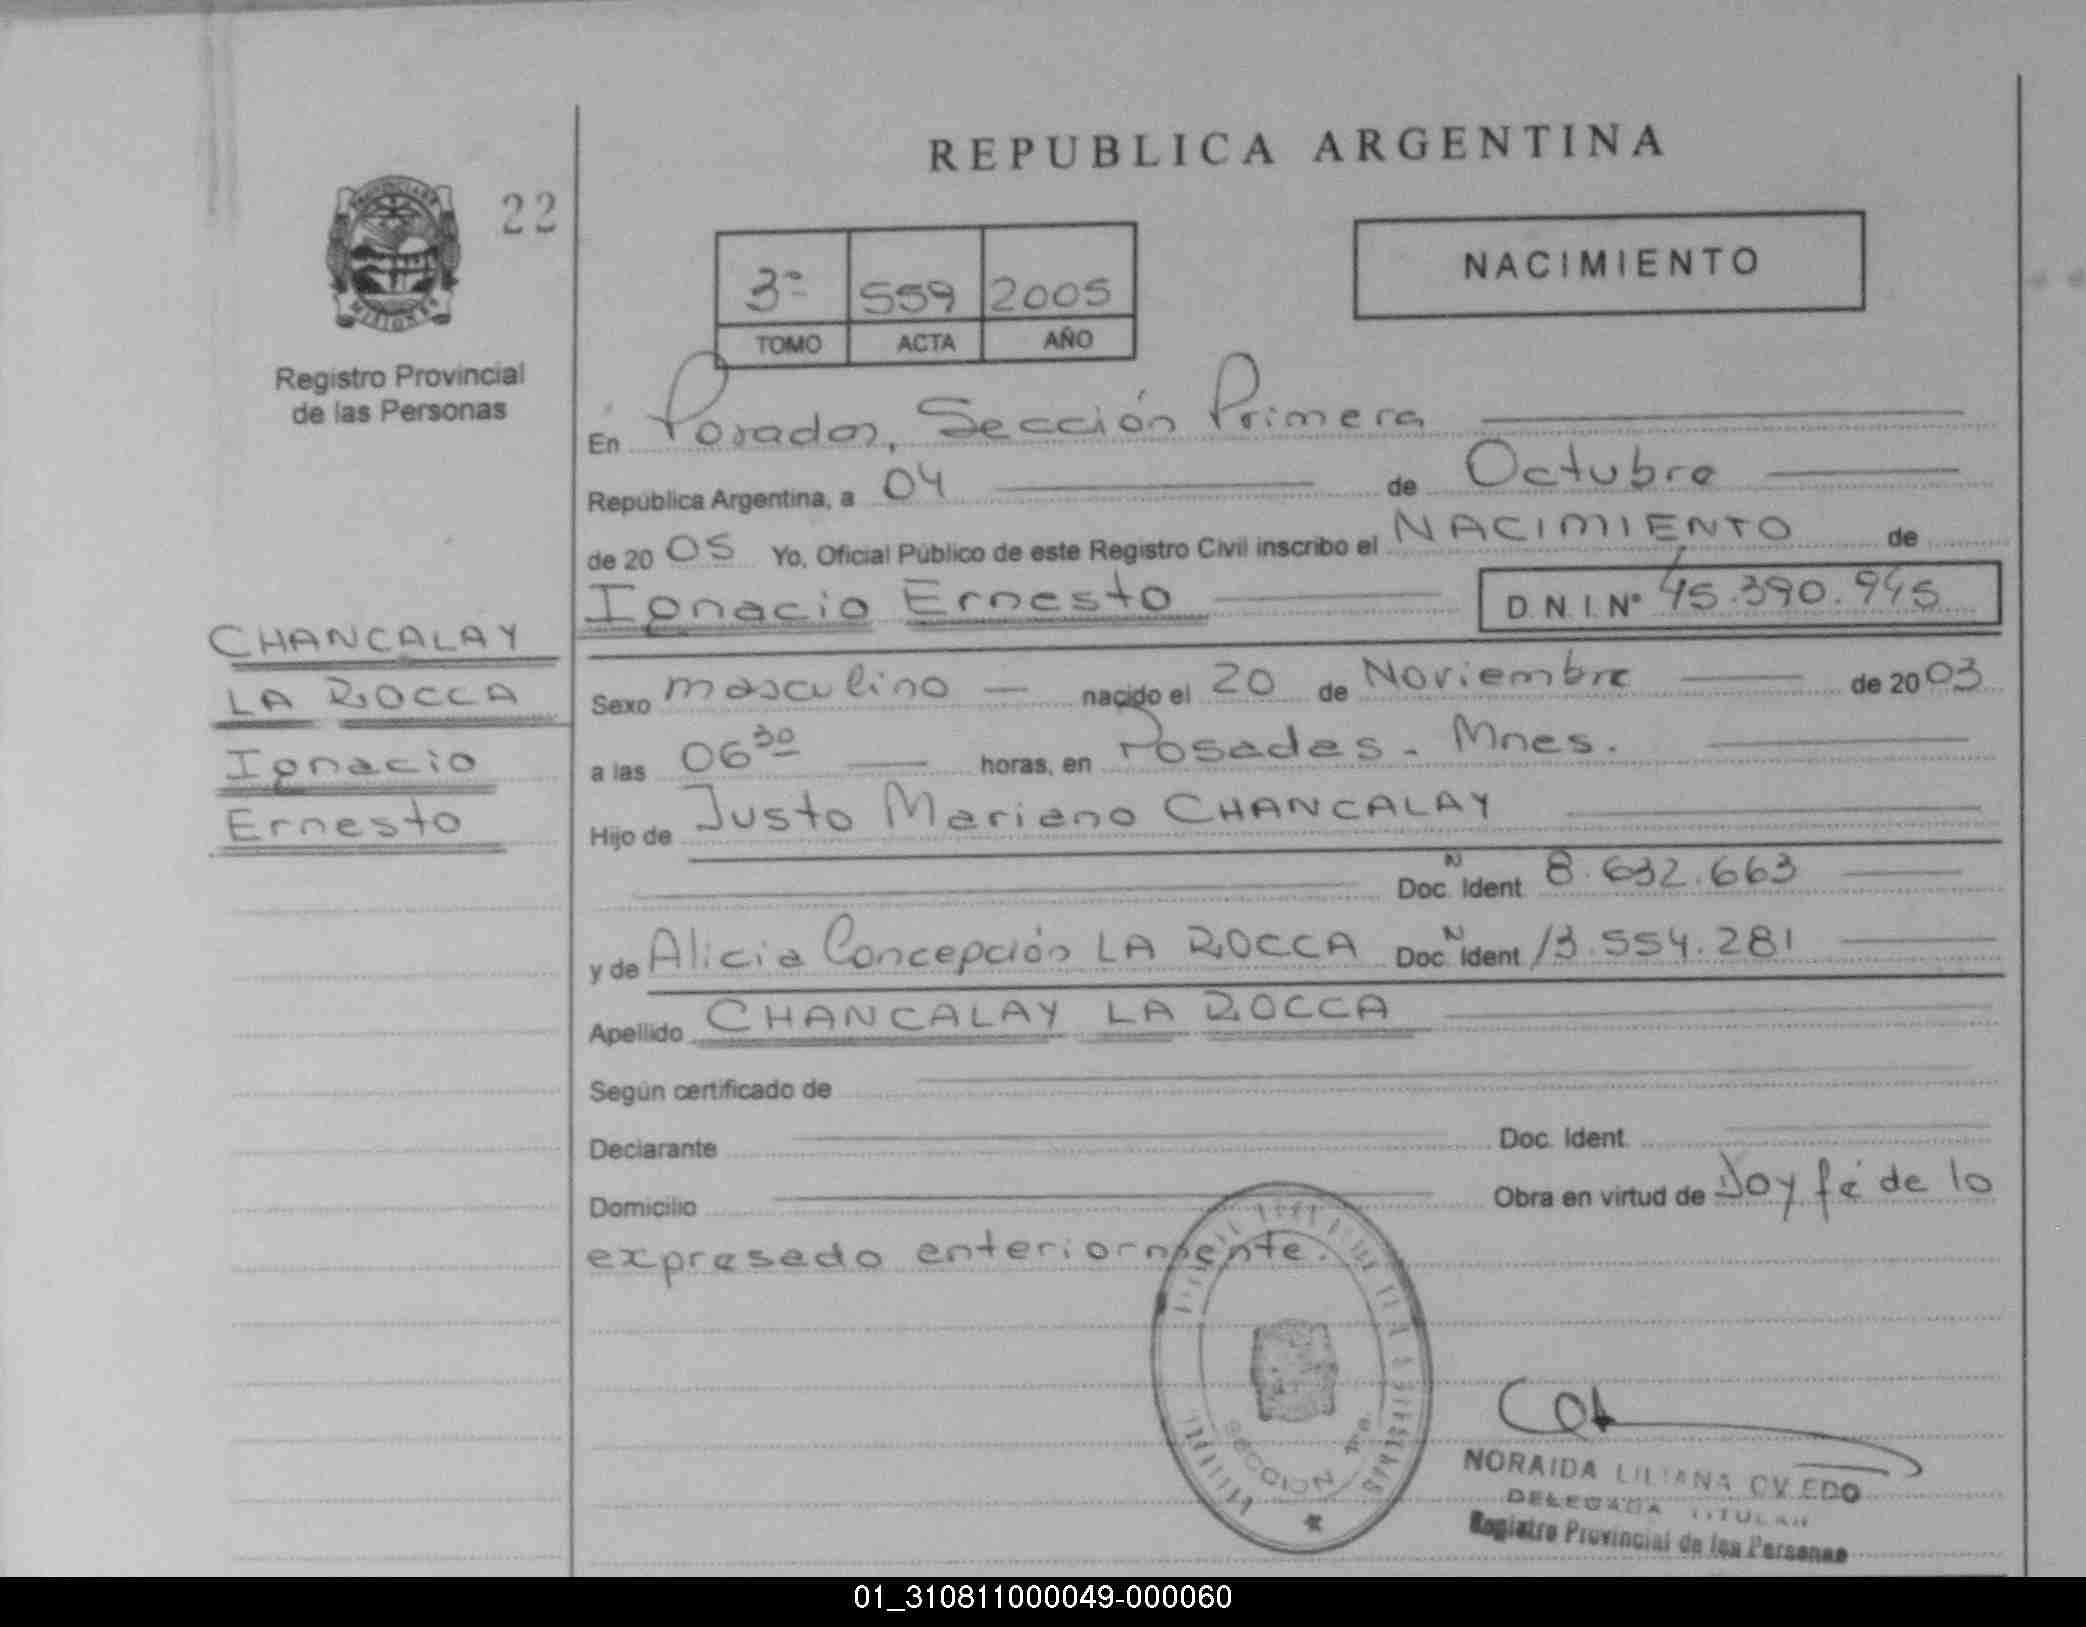 REPUBLICA ARGENTINA
22
NACIMIENTO
3º 559 2005
TOMO ACTA AÑO
MISIONES
Registro Provincial
de las Personas
En Posadas, Sección Primera
República Argentina, a 04 de Octubre
de 20 05 Yo, Oficial Público de este Registro Civil inscribo el NACIMIENTO de
Ignacio Ernesto D.N.I.Nº 45.390.945
CHANCALAY
LA ROCCA
Ignacio
Ernesto
Sexo masculino nacido el 20 de Noviembre de 20 03
a las 06 30 horas, en Posadas - Mnes.
Hijo de Justo Mariano CHANCALAY
Doc. Ident N 8.632.663
y de Alicia Concepción LA ROCCA Doc. Ident N 13.554.281
Apellido CHANCALAY LA ROCCA
Según certificado de
Declarante Doc. Ident.
Domicilio Obra en virtud de Doy fé de lo
expresado anteriormente.
SECCION 1ra.
NORAIDA LILIANA OVIEDO
DELEGADA TITULAR
Registro Provincial de las Personas
01_310811000049-000060